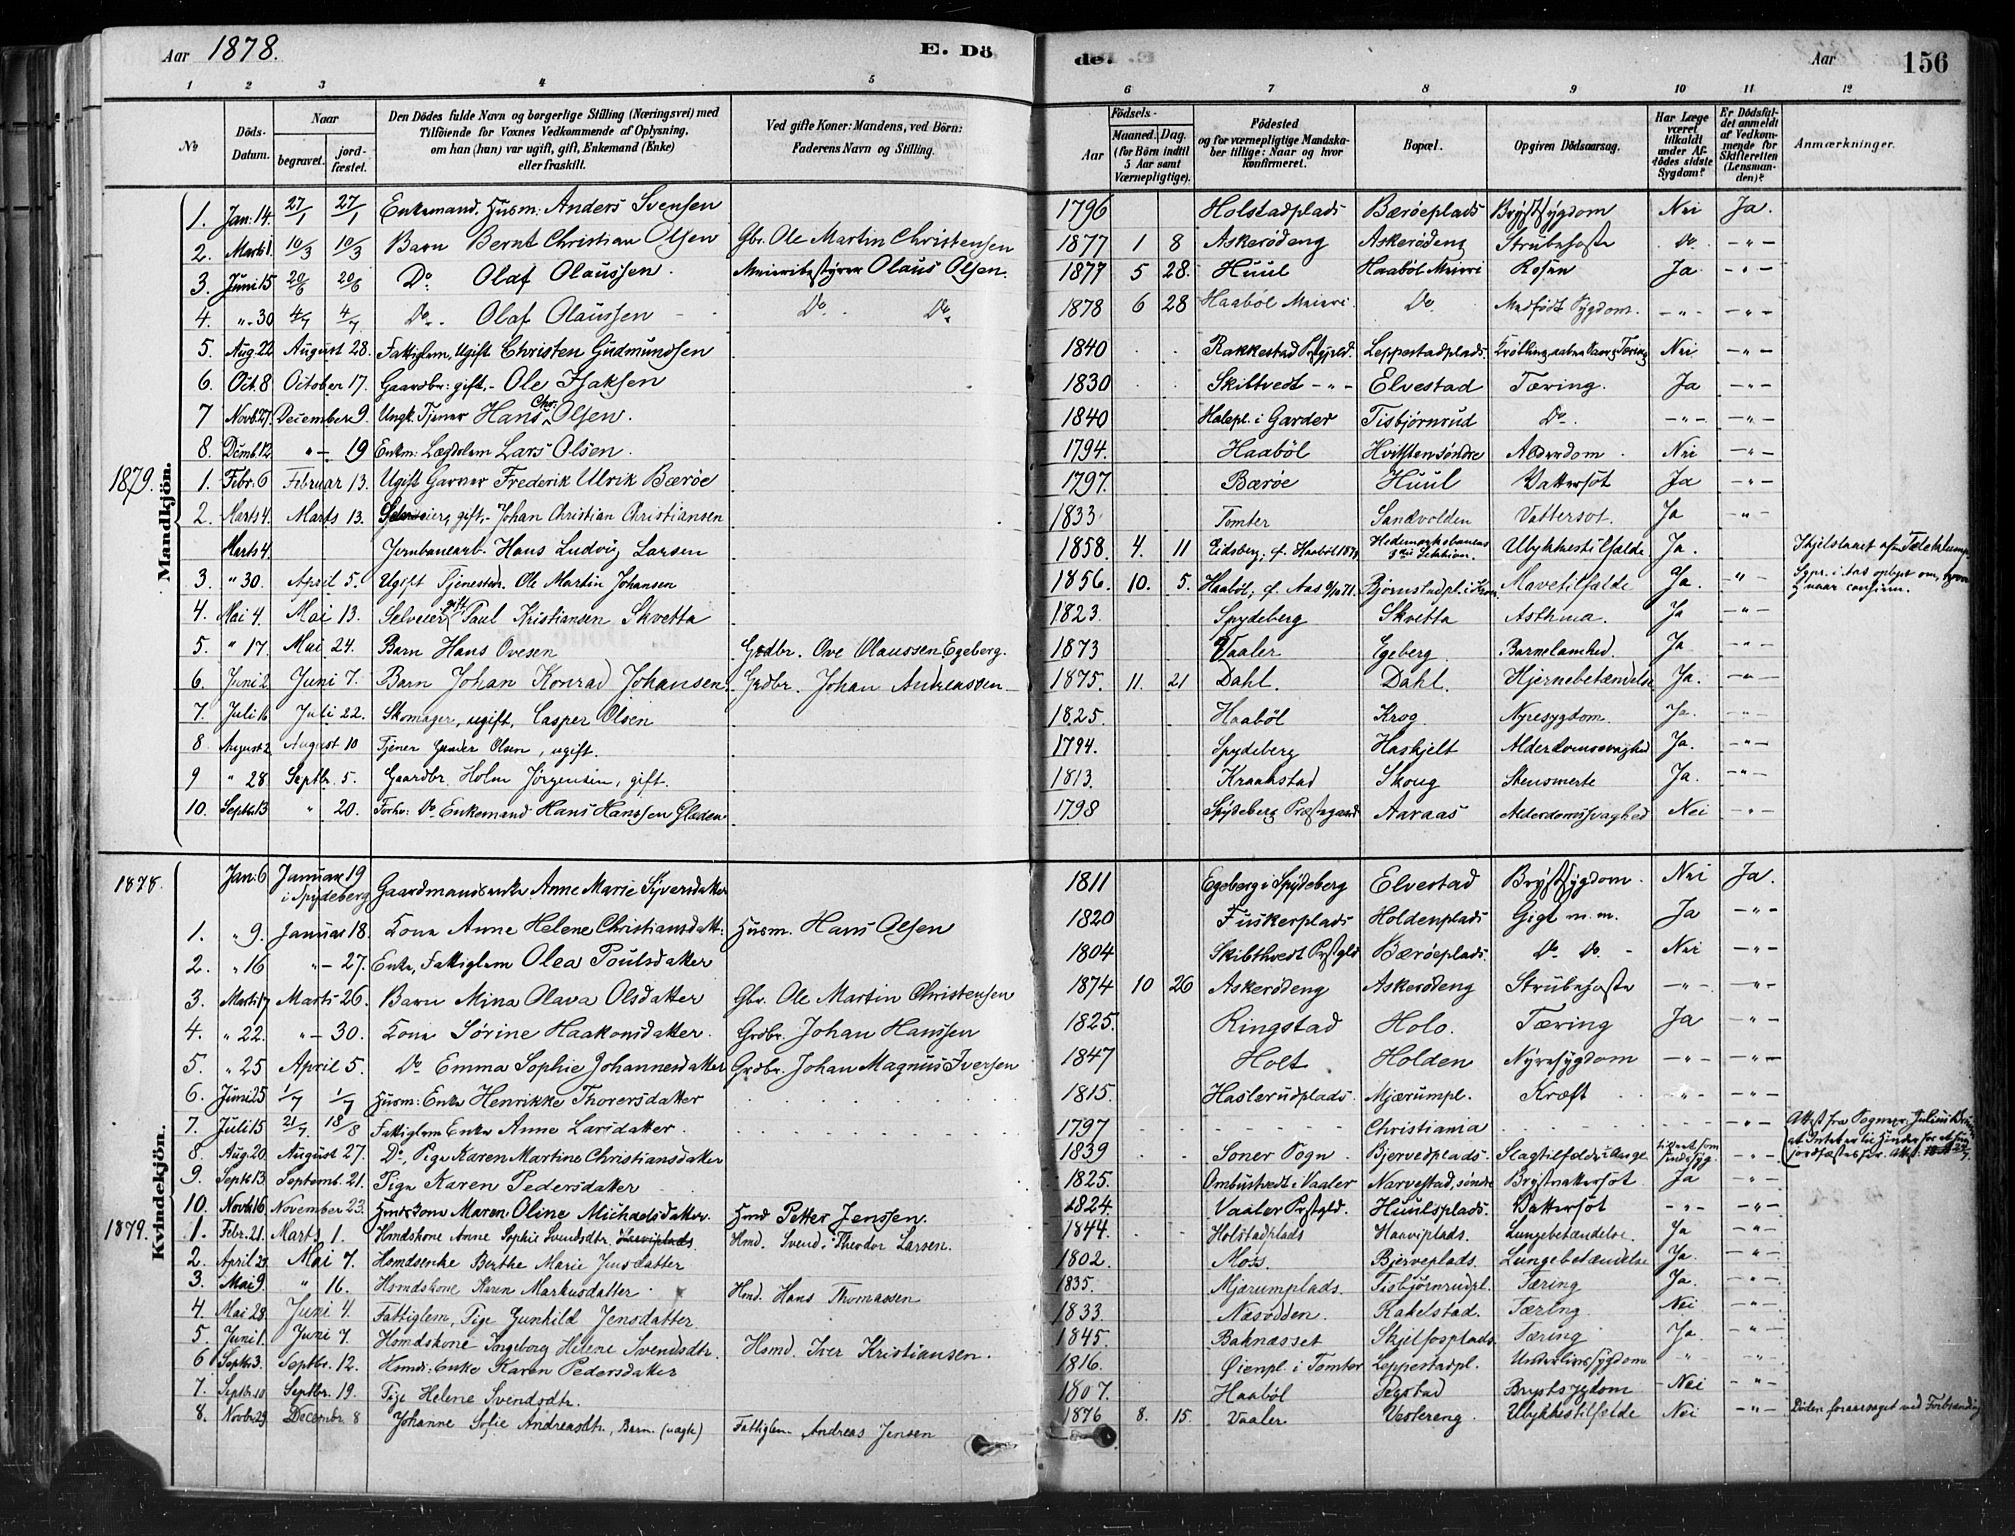 Aar 1878. E. Dö de. Aar 156
1 2 3 4 5 6 7 8 9 10 11 12
No
Döds-Datum.
Naar begravet. jord-fæstet.
Den Dödes fulde Navn og borgerlige Stilling (Næringsvei) med Tilföiende for Voxnes Vedkommende af Oplysning, om han (hun) var ugift, gift, Enkemand (Enke) eller fraskilt.
Ved gifte Koner: Mandens, ved Börn: Faderens Navn og Stilling.
Födsels-
Aar Maaned. Dag. (for Börn indtil 5 Aar samt Værnepligtige).
Födested og for værnepligtige Mandskaber tillige: Naar og hvor konfirmeret.
Bopæl.
Opgiven Dödsaarsag.
Har Læge været tilkaldt under Afdödes sidste Sygdom?
Er Dödsfaldet anmeldt af Vedkommende for Skifteretten (Lensmanden)?
Anmærkninger.
Mandkjön.
1. Jan: 14. 27/1 27/1 Enkemand. Husm: Anders Svensen 1796 Holstadplads Bærøeplads Brystsygdom Nei Ja.
2. Marts 1. 10/3 10/3 Barn Bernt Christian Olsen Gbr. Ole Martin Christensen 1877 1 8 Askerödeng Askerödeng Strubehoste Do. -"-
3. Juni 15 20/6 20/6 Do. Olaf Olaussen. Meieribestyrer Olaus Olsen. 1877 5 28. Huul Haaböl Meieri Rosen Ja. -"-
4. " 30 4/7 4/7 Do. Olaf Olaussen Do. Do. 1878 6 28 Haaböl Meieri. Do. Medfödt Sygdom. -"- -"-
5. Aug. 22 August 28. Fattiglem, Ugift Christen Gudmundsen 1840 Rakkestad Prstgjeld. Leppestadplads. Kröbling, aabne Saar, Tæring Nei -"-
6. Oct. 8 October 17. Gaardbr: gift, - Ole Isaksen 1830 Skibtvedt -"- Elvestad Tæring. Ja -"-
7 Novb. 27. December 9. Ungk. Tjener Hans Chr. Olsen. 1840 i Garder Tisbjørnrud Do. -"- -"-
8. Dcmb. 12. " - 19 Enkm: Lægdslem Lars Olsen. 1794. Haaböl Hvitsten söndre Alderdom. Nei -"-
1879. 1. Febr. 6 Februar 13. Ugift Garver Frederik Ulrik Bærøe 1797. Bærøe Huul Vattersot Ja -"-
2. Marts 4. Marts 13. Selveier, gift, - Johan Christian Christiansen 1833 Tomter Sandvolden Vattersot. Ja -"-
Marts 4. Jernbanearb. Hans Ludvig Larsen 1858. 4. 11 Eidsberg; cf. Haaböl 187 Hedemarksbanens Sektion. Ulykkestilfælde Ja. Ihjelslaaet af en Teleklump.
3. " 30 April 5. Ugift Tjenestedr. Ole Martin Johansen 1856. 10. 5. Haaböl, cf. Aas 9/10 71. Bjørnstadpl. i Kroer Mavetilfælde Ja. -"- Sgpr. i Aas oplyst om, hvor & naar confirm.
4. Mai 4. Mai 13. Selveier, gift Paul Kristiansen Skvetta 1823. Spydeberg Skvetta Asthma. Ja -"-
5. " 17. Mai 24. Barn Hans Ovesen Grdbr. Ove Olaussen Egeberg. 1873 Vaaler Egeberg. Barnelamhed. Ja -"-
6. Juni 2 Juni 7. Barn Johan Konrad Johansen. Grdbr. Johan Andreassen 1875. 11. 21 Dahl. Dahl. Hjernebetændelse Ja. -"-
7. Juli 16 Juli 22. Skomager, ugift, Casper Olsen 1825. Haaböl Krog Nyresygdom. Ja. -"-
8. August 2 August 10 Tjener Gunder Olsen, ugift. 1794. Spydeberg Haskjelt Alderdomssvaghed Ja. -"-
9 " 28 Septbr. 5. Gaardbr. Holm Jörgensen, gift. 1813. Kraakstad Skoug Stensmerte Ja. -"-
10. Septbr. 13 " 20. Forhv: Do Enkemand Hans Hanssen Glæden. 1798 Spydeberg Præstegaard Aaraas Alderdomssvaghed Nei -"-
Kvindekjön.
1878. Jan: 6 Januar 19 i Spydeberg Gaardmandsenke Anne Marie Syversdatter 1811 Egeberg i Spydeberg Elvestad Brystsygdom. Nei Ja.
1. " 9. Januar 18. Kone Anne Helene Christiansdatt: Husm. Hans Olsen 1820 Fuskerplads Holdenplads Gigt m.m. Ja -"-
2. " 16 " - 27. Enke, Fattiglem Olea Poulsdatter 1804 Skibthvedt Prstgld Bærøeplads. Do. Do. - Nei -"-
3. Marts 17 Marts 26. Barn Mina Olava Olsdatter Gbr. Ole Martin Christensen 1874 10 26 Askerödeng Askerödeng Strubehoste -"- -"-
4. " 22. " - 30. Kone Sörine Haakonsdatter. Grdbr. Johan Hanssen 1825. Ringstad Holo. Tæring Ja -"-
5. " 25 April 5. Do Emma Sophie Johannesdatter Grdbr. Johan Magnus Iversen 1847 Holt Holden Nyresygdom -"- -"-
6. Juni 25 1/7 1/7 Husm: Enke Henrikke Thorersdatter 1815. Haslerudplads. Mjærumpl. Kræft -"- -"-
7. Juli 15 21/7 18/8 Fattiglem Enke Anne Larsdatter. 1797 Christiania -"- Attest fra Sogneprr. Julius at Intet er til Hinder for at hun jordfæstes her.
8. Aug. 20. August 27. Do, Pige Karen Martine Christiansdatter 1839 Soner Sogn. Bjervedplads. Slagtilfælde tilseet som Sindssyg. -"-
9. Septb. 13 Septemb. 21. Pige Karen Pedersdatter 1825. Ombustvedt i Vaaler Narvestad, söndre Brystvattersot. Ja -"-
10. Novb. 16 November 23. Hmdskone Maren Oline Michaelsdatter. Hmd Petter Jenssen. 1824. Vaaler Prstgld. Huulsplads. Vattersot -"- -"-
1879. 1. Febr. 21. Marts 1. Hmdskone Anne Sophie Svendsdtr. Hmd. Svend Theodor Larsen. 1844. Holstadplads Haaviplads. Lungebetændelse. Ja -"-
2. April 29 Mai 7. Hsmdsenke Berthe Marie Jensdatter 1802. Moss Bjerveplads. Lungebetændelse Ja. -"-
3. Mai 9. " 16. Hsmdskone Karen Markusdatter Hmd. Hans Thomassen 1835. Mjærumplads. Tisbjørnrudpl. Tæring Ja. -"-
4. Mai 28. Juni 4. Fattiglem, Pige Gunhild Jensdatter 1833. Næsodden. Rakelstad. Tæring. Nei -"-
5. Juni 1. Juni 7. Hsmdskone Ingeborg Helene Svendsdtr. Hsmd. Iver Kristiansen. 1845. Baknæsset Skjelfosplads. Tæring Ja. -"-
6 Septbr. 3. Septbr. 12. Hsmds: Enke Karen Pedersdatter 1816. Øienpl. i Tomter Leppestadpl. Underlivssygdom " -"-
7. Septbr. 10 Septbr. 19. Pige Helene Svendsdtr. 1807. Haaböl Segstad Brystsygdom Nei -"-
8. Novbr. 29 Decembr. 8 Johanne Sofie Andreasdtr, Barn (uægte) Fattiglem Andreas Jensen 1876 8. 15. Vaaler Vestereng. Ulykkestilfælde Nei -"- Döden foraarsaget ved Forbrænding